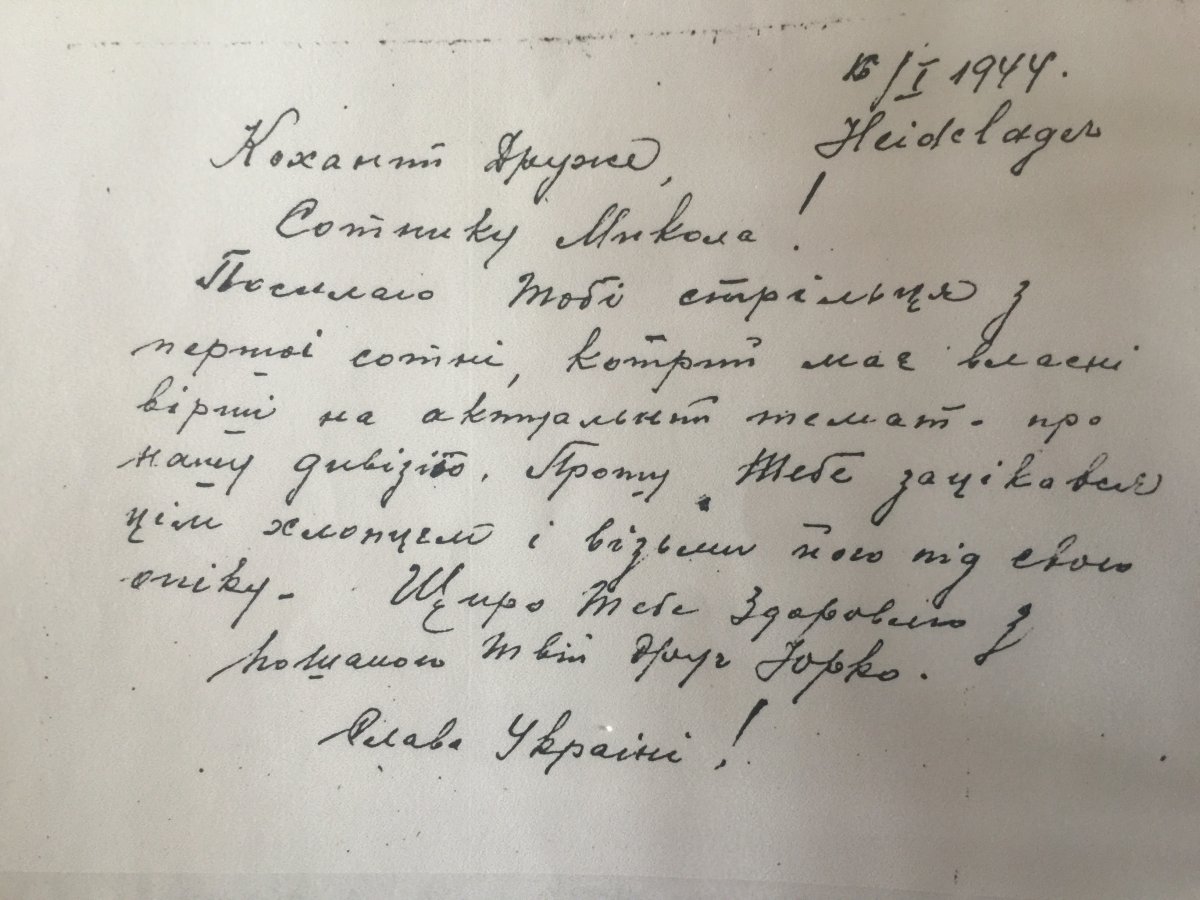 16/I 1944.
Heidelager
Коханий Друже,
Сотнику Микола!
Посилаю Тобі стрільця з
першої сотні, котрий має власні
вірші на актуальний темат - про
нашу дивізію. Прошу Тебе зацікався
цім хлопцем і візьми його під свою
опіку. Щиро Тебе Здоровлю з
пошаною Твій Друг Юрко.
Слава Україні!